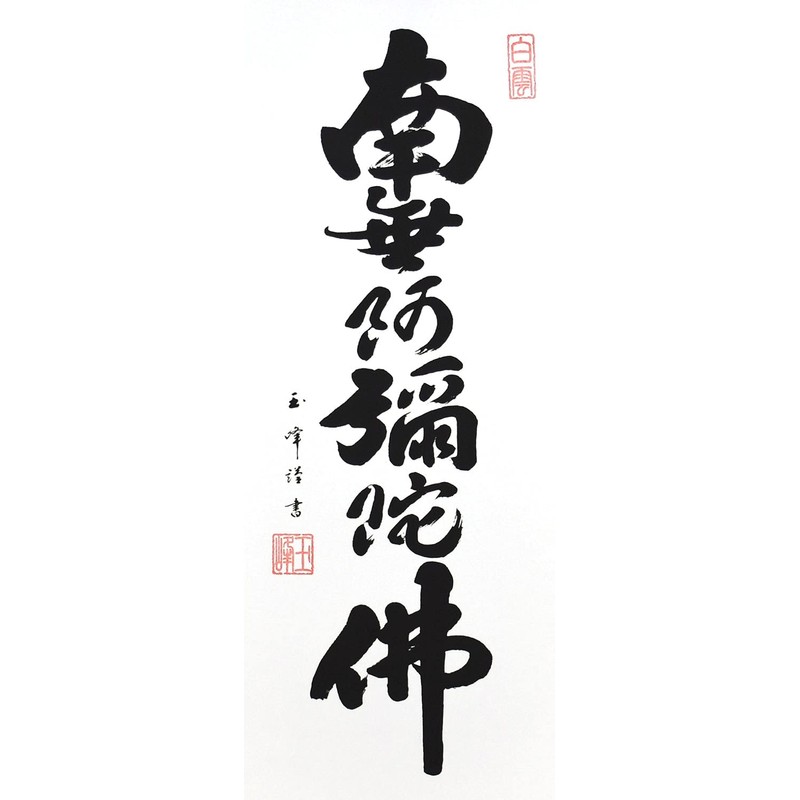 白雲
南無阿彌陀佛
玉峰謹書
玉峰